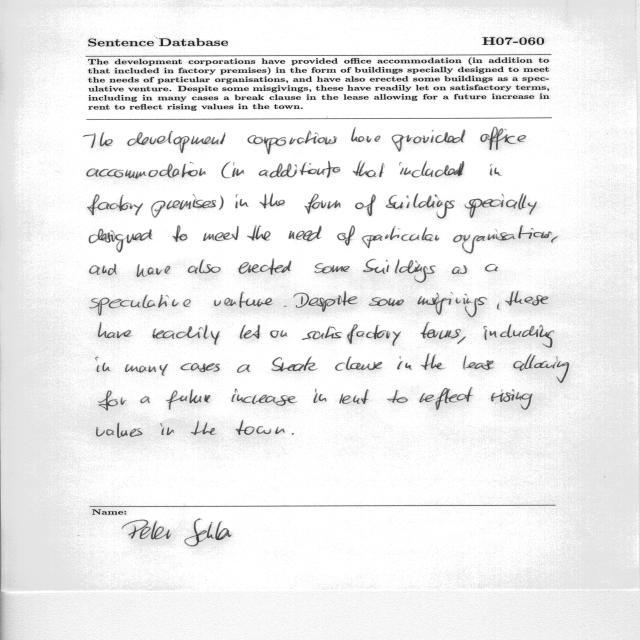 Sentence Database H07-060
The development corporations have provided office accommodation (in addition to
that included in factory premises) in the form of buildings specially designed to meet
the needs of particular organisations, and have also erected some buildings as a spec-
ulative venture. Despite some misgivings, these have readily let on satisfactory terms,
including in many cases a break clause in the lease allowing for a future increase in
rent to reflect rising values in the town.
The development corporations have provided office
accommodation (in addition to that included in
factory premises) in the form of buildings specially
designed to meet the need of particular organisations,
and have also erected some buildings as a
speculative venture. Despite some misgivings, these
have readily let on satisfactory terms, including
in many cases a break clause in the lease allowing
for a future increase in rent to reflect rising
values in the town.
Name:
Peter